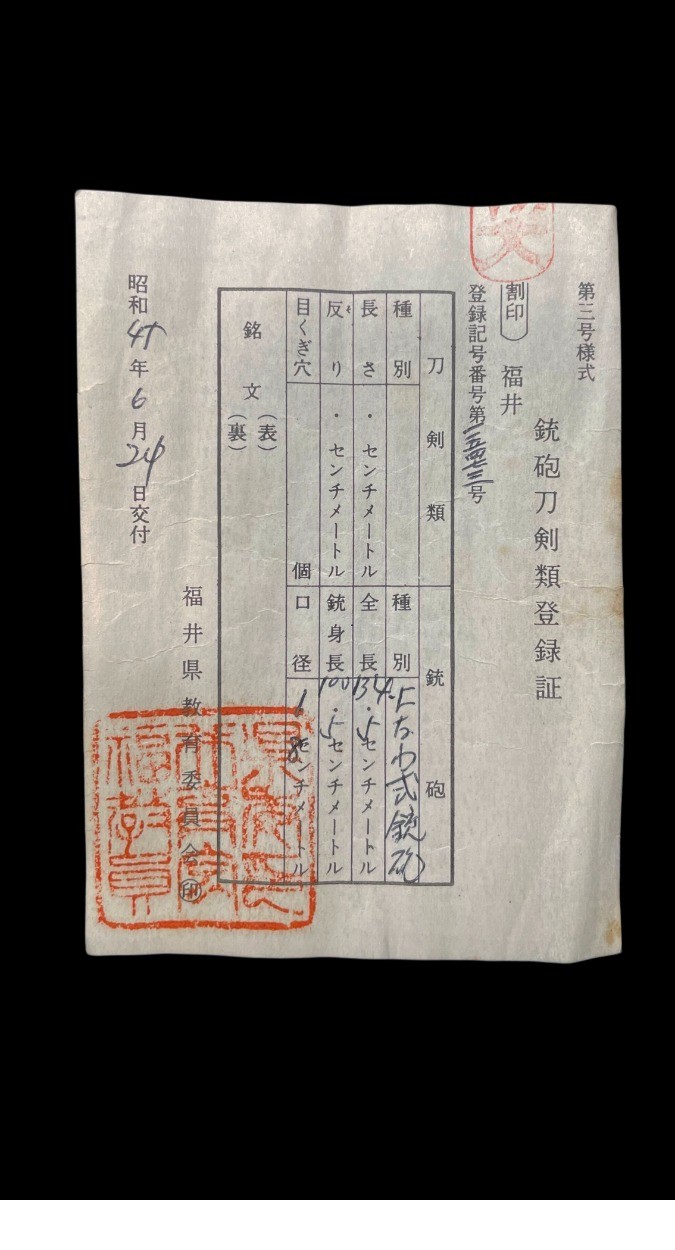 第三号様式
銃砲刀剣類登録証
割印
福井
登録記号番号第号
刀剣類
種別
長さ
・センチメートル
反り
・センチメートル
目くぎ穴
個
銘文
(表)
(裏)
銃砲
種別
火なわ式銃砲
全長
134.5センチメートル
銃身長
100.5センチメートル
口径
1.8センチメートル
昭和41年6月24日交付
福井県教育委員会印